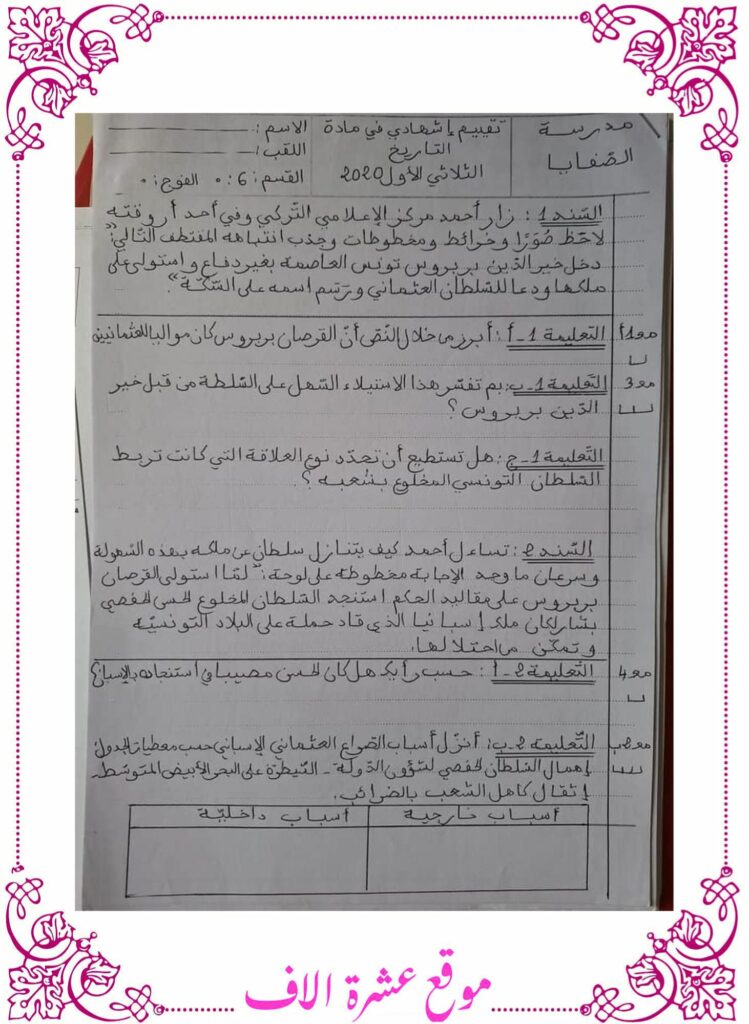 مدرسة
الصّفايا
تقييم إشهادي في مادة
التاريخ
الثلاثي الأول 2020
الاسم:
اللقب:
القسم: 6 الفوج:
السّند 1: زار أحمد مركز الإعلامي التّركي وفي أحد أروقته
لاحظ صُوَرًا وخرائط ومخطوطات وجذب انتباهه المقتطف التّالي: "
دخل خير الدّين بربروس تونس العاصمة بغير دفاع و استولى على
ملكها ودعا للسّلطان العثماني ورَسَم اسمه على السّكّة".
مع1أ
التعليمة 1-أ: أبرز من خلال النّصّ أنّ القرصان بربروس كان مواليا للعثمانيين
مع3
التّعليمة 1-ب: بم تفسّر هذا الاستيلاء السّهل على السّلطة من قبل خير
الدّين بربروس؟
التّعليمة 1-ج: هل تستطيع أن تحدّد نوع العلاقة التي كانت تربط
السّلطان التونسي المخلوع بشعبه؟
السّند 2: تساءل أحمد كيف يتنازل سلطان عن ملكه بهذه السّهولة
وسرعان ما وجد الإجابة مخطوطة على لوحة: "لمّا استولى القرصان
بربروس على مقاليد الحكم استنجد السّلطان المخلوع الحسن الحفصي
بشارلكان ملك إسبانيا الذي قاد حملة على البلاد التّونسيّة
و تمكّن من احتلالها.
مع4
التّعليمة 2-أ: حسب رأيك هل كان الحسن مصيبا في استنجاده بالإسبان؟
مع2ب
التّعليمة 2-ب: أنزّل أسباب الصّراع العثماني الإسباني حسب معطيات الجدول:
إهمال السّلطان الحفصي لشؤون الدّولة - السّيطرة على البحر الأبيض المتوسّط -
إثقال كاهل الشّعب بالضّرائب.
أسباب خارجية
أسباب داخليّة
موقع عشرة الاف